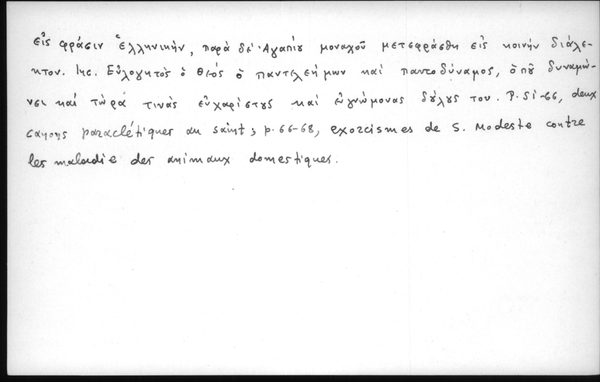 εἰς φράσιν ἑλληνικήν, παρὰ δὲ Ἀγαπίου μοναχοῦ μετεφράσθη εἰς κοινήν διάλε-
κτον. Inc. Εὐλογητὸς ὁ θεός ὁ παντελεήμων καὶ παντοδύναμος, ὁποῦ δυναμώ-
νει καὶ τώρα τινὰς εὐχαρίστους καὶ εὐγνώμονας δούλους του. P. 51-66, deux
canons paraclétiques au saint; p. 66-68, exorcismes de S. Modeste contre
les maladie des animaux domestiques.